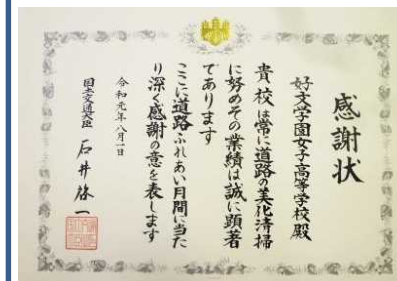 感謝状
好文学園女子高等学校殿
貴校は常に道路の美化清掃
に努めその業績は誠に顕著
であります
ここに道路ふれあい月間に当た
り深く感謝の意を表します
令和元年八月一日
国土交通大臣 石井啓一